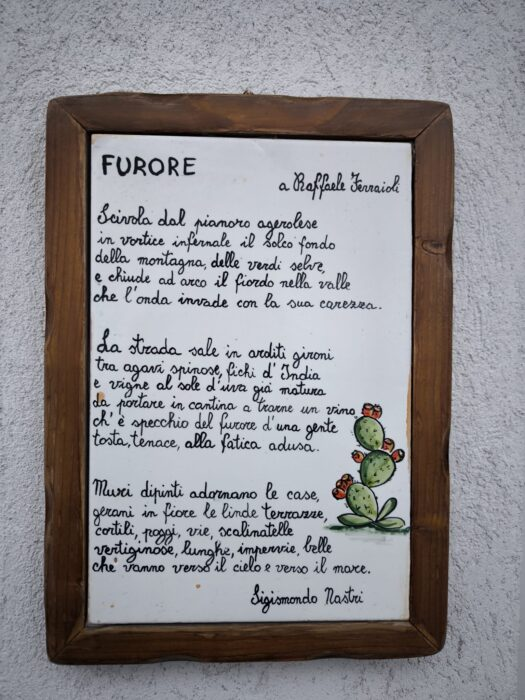 FURORE
a Raffaele Ferraioli
Scivola dal pianoro agerolese
in vortice infernale il solco fondo
della montagna, delle verdi selve,
e chiude ad arco il fiordo nella valle
che l'onda invade con la sua carezza.
La strada sale in arditi gironi
tra agavi spinose, fichi d'India
e vigne al sole d'uva già matura
da portare in cantina a trarne un vino
ch'è specchio del furore d'una gente
tosta, tenace, alla fatica adusa.
Muri dipinti adornano le case,
gerani in fiore le linde terrazze,
cortili, poggi, vie, scalinatelle
vertiginose, lunghe, impervie, belle
che vanno verso il cielo e verso il mare.
Sigismondo Nastri